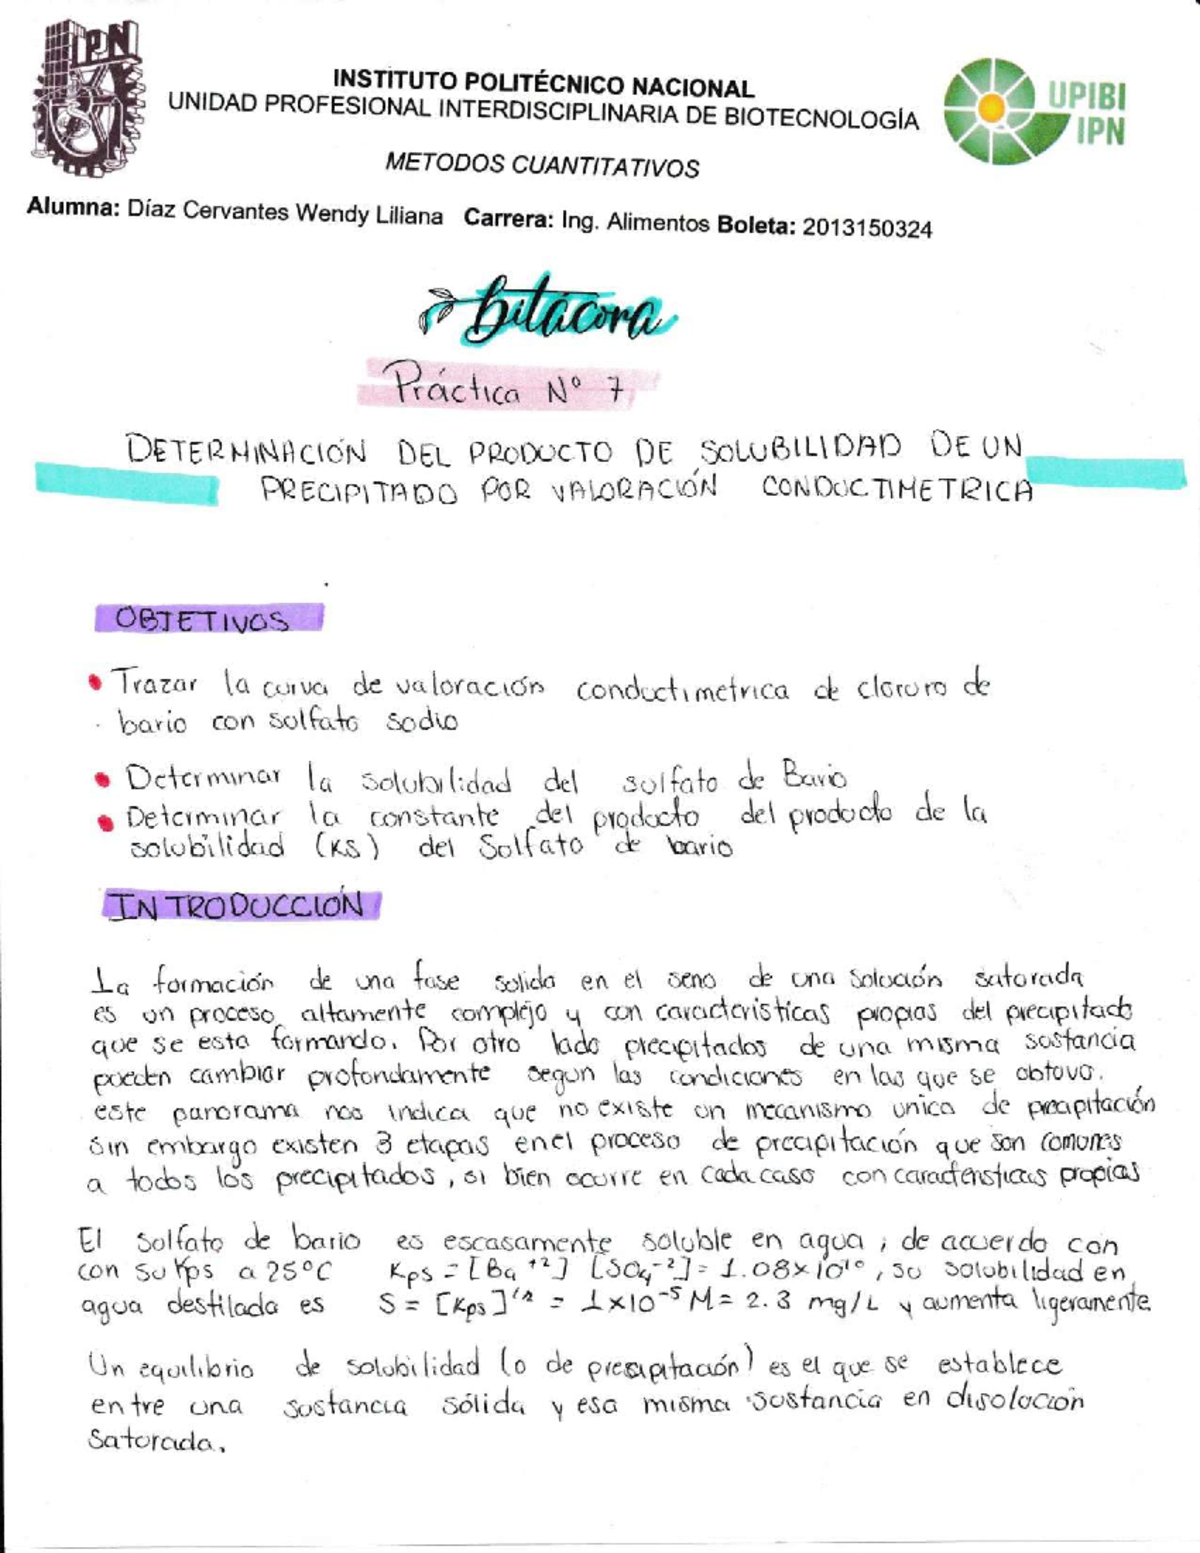 IPN
INSTITUTO POLITÉCNICO NACIONAL
UNIDAD PROFESIONAL INTERDISCIPLINARIA DE BIOTECNOLOGÍA
UPIBI
IPN
METODOS CUANTITATIVOS
Alumna: Díaz Cervantes Wendy Liliana Carrera: Ing. Alimentos Boleta: 2013150324
bitácora
Práctica N° 7
DETERMINACIÓN DEL PRODUCTO DE SOLUBILIDAD DE UN
PRECIPITADO POR VALORACIÓN CONDUCTIMETRICA
OBJETIVOS
• Trazar la curva de valoración conductimetrica de cloruro de
bario con sulfato sodio
• Determinar la solubilidad del sulfato de Bario
• Determinar la constante del producto del producto de la
solubilidad (KS) del Sulfato de bario
INTRODUCCIÓN
La formación de una fase solida en el seno de una solución saturada
es un proceso altamente complejo y con características propias del precipitado
que se esta formando. Por otro lado precipitados de una misma sustancia
pueden cambiar profundamente segun las condiciones en las que se obtuvo.
este panorama nos indica que no existe un mecanismo unico de precapitación
Sin embargo existen 3 etapas en el proceso de precipitación que son comunes
a todos los precipitados, si bien ocurre en cada caso con características propias
El sulfato de bario es escasamente soluble en agua, de acuerdo con
con su Kps a 25°C Kps = [Ba⁺²] [SO₄⁻²] = 1.08x10¹⁰, su solubilidad en
agua destilada es S = [Kps]¹/² = 1x10⁻⁵ M = 2.3 mg/L y aumenta ligeramente
Un equilibrio de solubilidad (o de precipitación) es el que se establece
entre una sustancia sólida y esa misma sustancia en disolución
saturada.